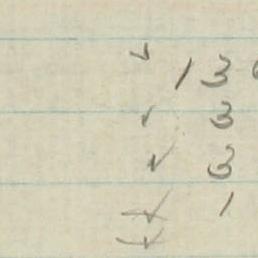 ✓ 13
✓ 3
✓ 3
✓ 1
✓